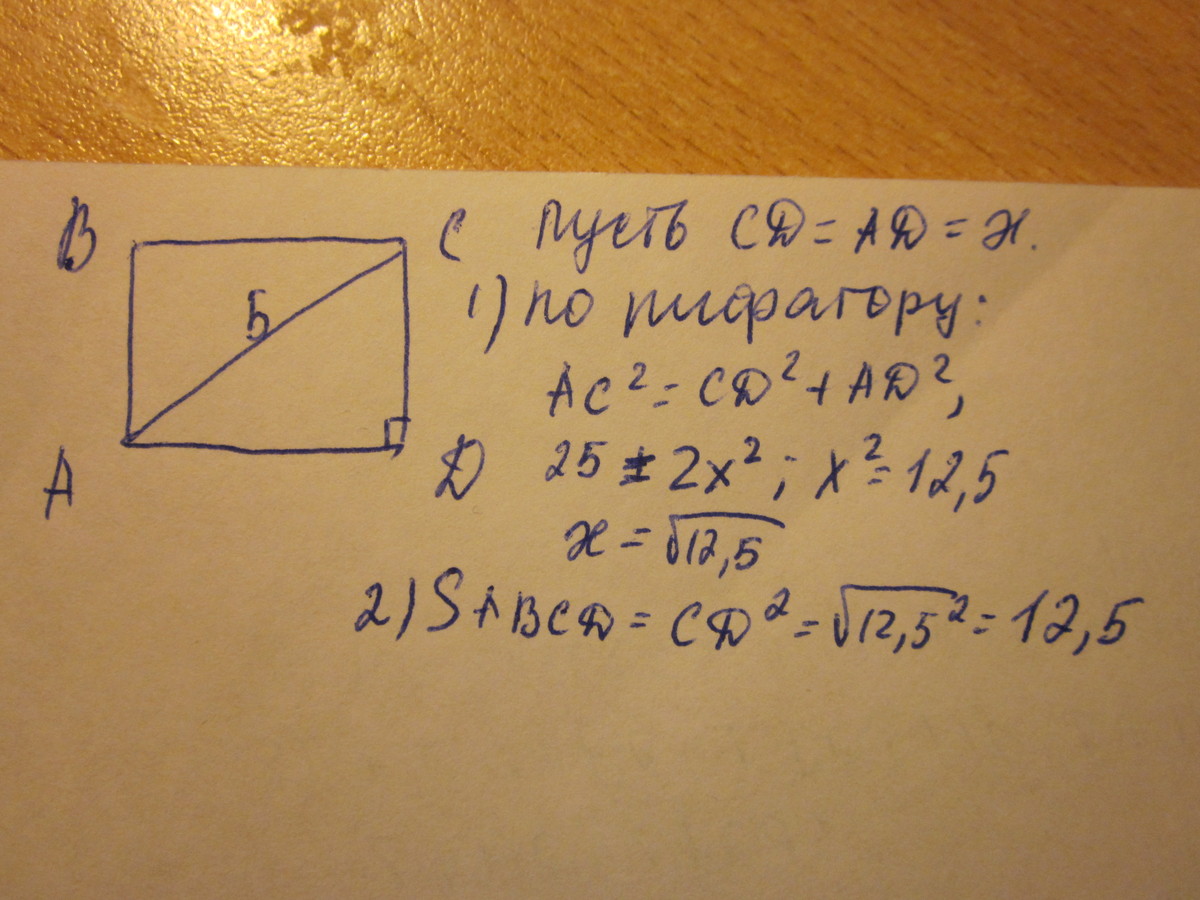 B
C
5
A
D
пусть CD = AD = x.
1) по пифагору:
AC² = CD² + AD²,
25 = 2x²; x² = 12,5
x = √12,5
2) SABCD = CD² = √12,5² = 12,5